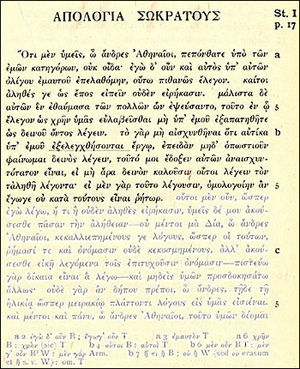 ΑΠΟΛΟΓΙΑ ΣΩΚΡΑΤΟΥΣ
St. I
p. 17
Ὅτι μὲν ὑμεῖς, ὦ ἄνδρες Ἀθηναῖοι, πεπόνθατε ὑπὸ τῶν a
ἐμῶν κατηγόρων, οὐκ οἶδα· ἐγὼ δ' οὖν καὶ αὐτὸς ὑπ' αὐτῶν
ὀλίγου ἐμαυτοῦ ἐπελαθόμην, οὕτω πιθανῶς ἔλεγον. καίτοι
ἀληθές γε ὡς ἔπος εἰπεῖν οὐδὲν εἰρήκασιν. μάλιστα δὲ
αὐτῶν ἓν ἐθαύμασα τῶν πολλῶν ὧν ἐψεύσαντο, τοῦτο ἐν ᾧ 5
ἔλεγον ὡς χρῆν ὑμᾶς εὐλαβεῖσθαι μὴ ὑπ' ἐμοῦ ἐξαπατηθῆτε
ὡς δεινοῦ ὄντος λέγειν. τὸ γὰρ μὴ αἰσχυνθῆναι ὅτι αὐτίκα b
ὑπ' ἐμοῦ ἐξελεγχθήσονται ἔργῳ, ἐπειδὰν μηδ' ὁπωστιοῦν
φαίνωμαι δεινὸς λέγειν, τοῦτό μοι ἔδοξεν αὐτῶν ἀναισχυν-
τότατον εἶναι, εἰ μὴ ἄρα δεινὸν καλοῦσιν οὗτοι λέγειν τὸν
τἀληθῆ λέγοντα· εἰ μὲν γὰρ τοῦτο λέγουσιν, ὁμολογοίην ἂν 5
ἔγωγε οὐ κατὰ τούτους εἶναι ῥήτωρ. οὗτοι μὲν οὖν, ὥσπερ
ἐγὼ λέγω, ἤ τι ἢ οὐδὲν ἀληθὲς εἰρήκασιν, ὑμεῖς δέ μου ἀκού-
σεσθε πᾶσαν τὴν ἀλήθειαν—οὐ μέντοι μὰ Δία, ὦ ἄνδρες
Ἀθηναῖοι, κεκαλλιεπημένους γε λόγους, ὥσπερ οἱ τούτων,
ῥήμασί τε καὶ ὀνόμασιν οὐδὲ κεκοσμημένους, ἀλλ' ἀκού- c
σεσθε εἰκῇ λεγόμενα τοῖς ἐπιτυχοῦσιν ὀνόμασιν—πιστεύω
γὰρ δίκαια εἶναι ἃ λέγω—καὶ μηδεὶς ὑμῶν προσδοκησάτω
ἄλλως· οὐδὲ γὰρ ἂν δήπου πρέποι, ὦ ἄνδρες, τῇδε τῇ
ἡλικίᾳ ὥσπερ μειρακίῳ πλάττοντι λόγους εἰς ὑμᾶς εἰσιέναι. 5
καὶ μέντοι καὶ πάνυ, ὦ ἄνδρες Ἀθηναῖοι, τοῦτο ὑμῶν δέομαι